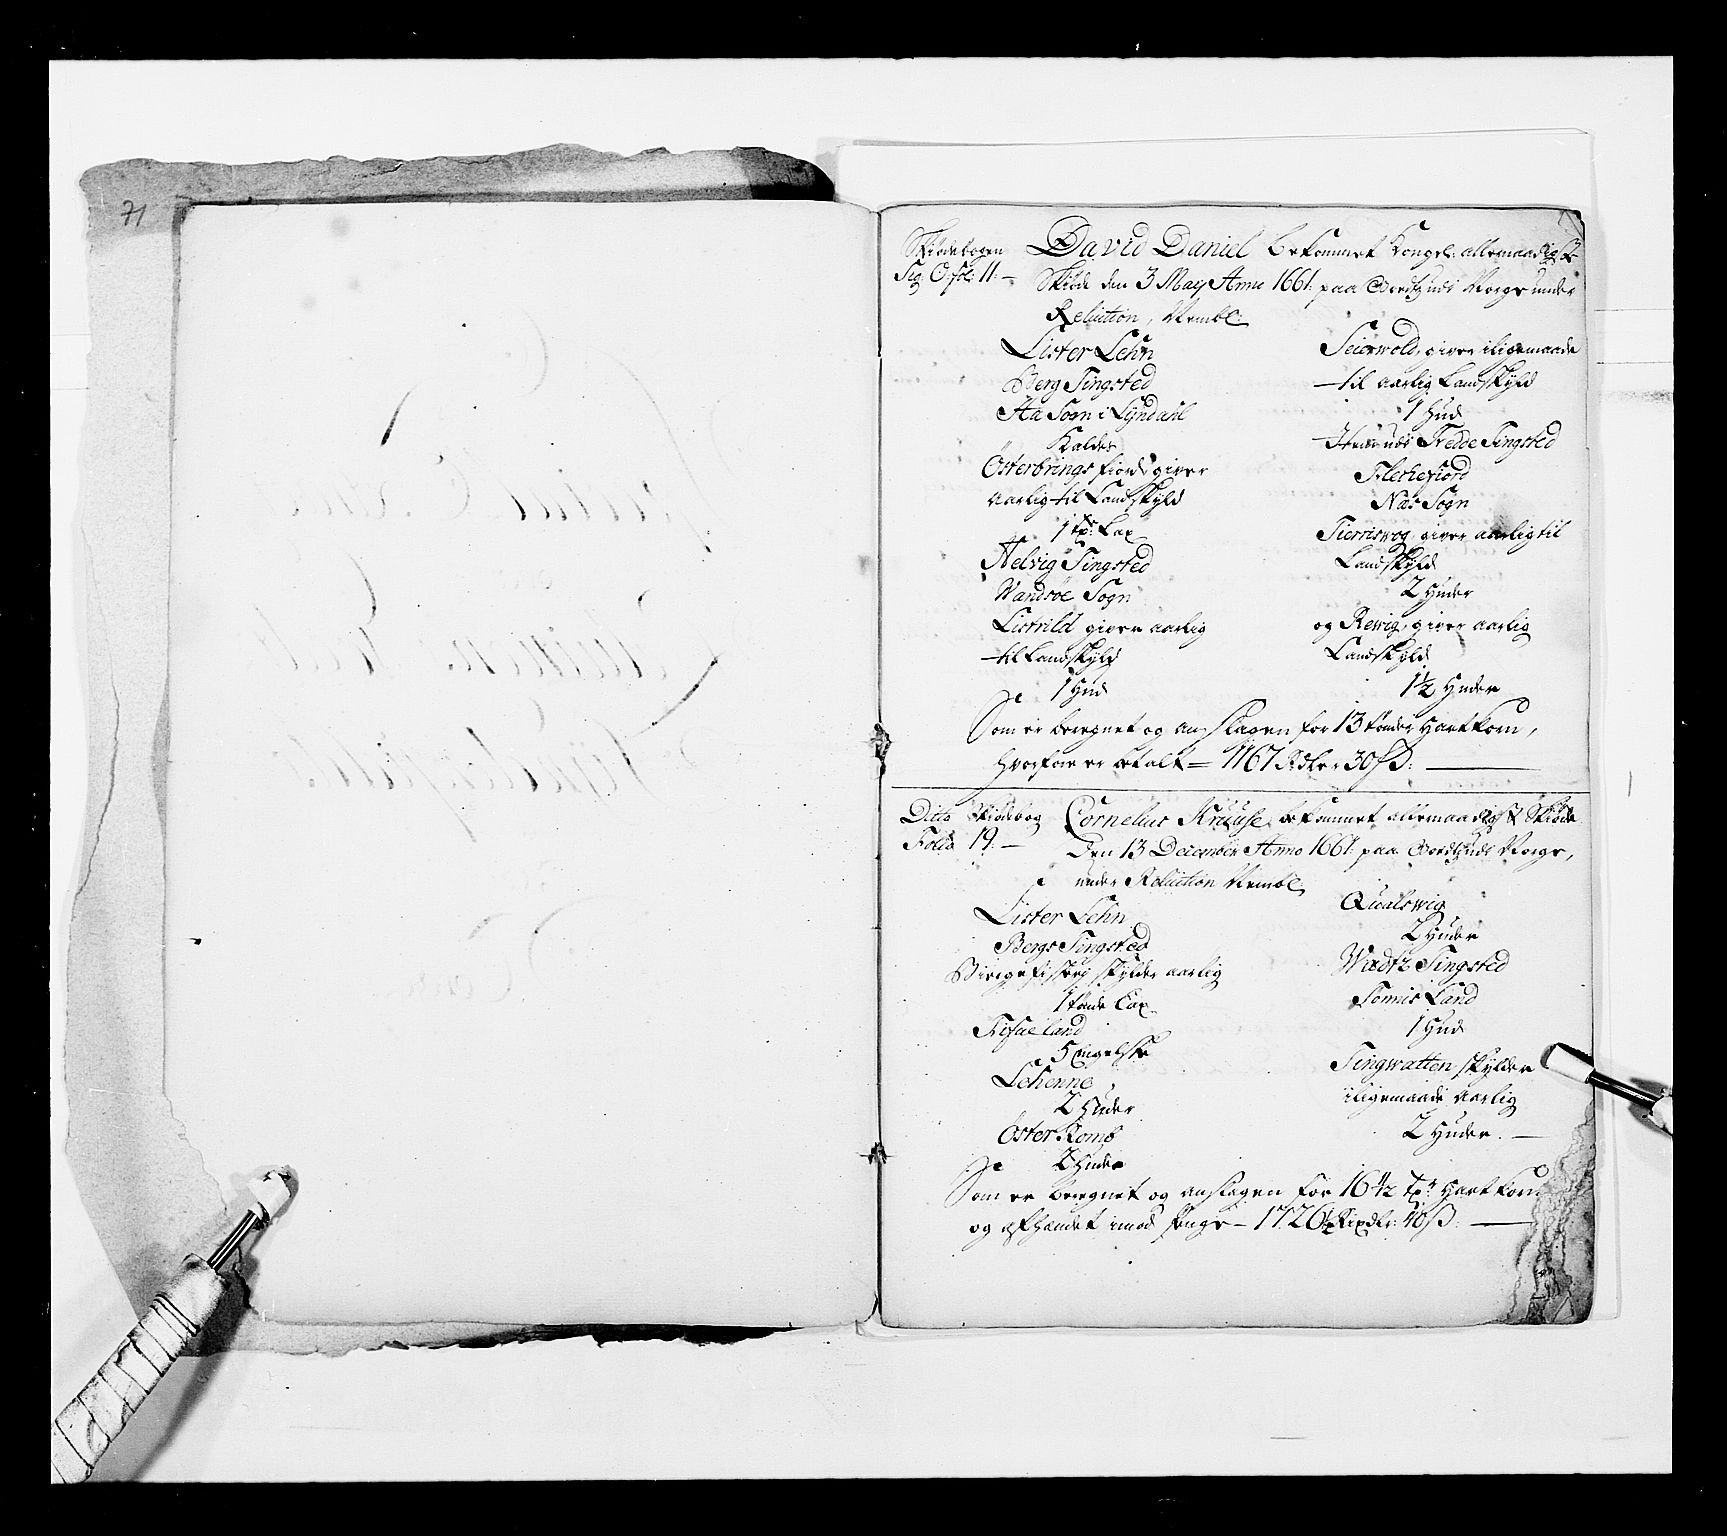 71
Skiødebogen
Sig: O: fol: 11: —
David Daniel bekommet Kongel: allernaadigst
Skiøde den 3 May Anno 1661: paa Bordhuus Norge under
Relution, Nembl:
Lister Lehn
Berg Tingsted
Aa Sogn i Lyndahl
Kaldes
Österbrings fiord giver
aarlig til Landskyld
1 tr: Lax
Helvig Tingsted
Wandsöe Sogn
Listrild giver aarlig
til Landskyld
1 Hud
Seierwold, giver iligemaade
til aarlig Landskyld
1 Hud
Tredde Tingsted
Flechefiord
Næs Sogn
Tierriswog giver aarlig til
Landskyld
2 Huder
og Rewig, giver aarlig
Landskyld
1½ Huder
Som er beregnet og anslagen for 13 tønder Hartkorn,
hvorfor er betalt = 1167 Rdler 30 ß: —
Ditto Skiødebog
Folio 19: —
Cornelius Kruuse bekommet allernaadigst Skiøde
den 13 December Anno 1661: paa Bordhuus Norge,
under Relution Nembl:
Lister Lehn
Bergs Tingsted
skylder aarlig
1 tønde Lax
Kifaeland
5 Engelske
Lehenne
2 Huder
Öster Komb
2 Huder
Qualswig
2 Huder
Wadtz Tingsted
Tomis Land
1 Hud
Tingwatten skylder
iligemaade aarlig
2 Huder. —
Som er beregnet og anslagen for 16½ Tr: Hartkorn
og afhændet imod penge — 1726½ Rixdlr: 40 ß: —